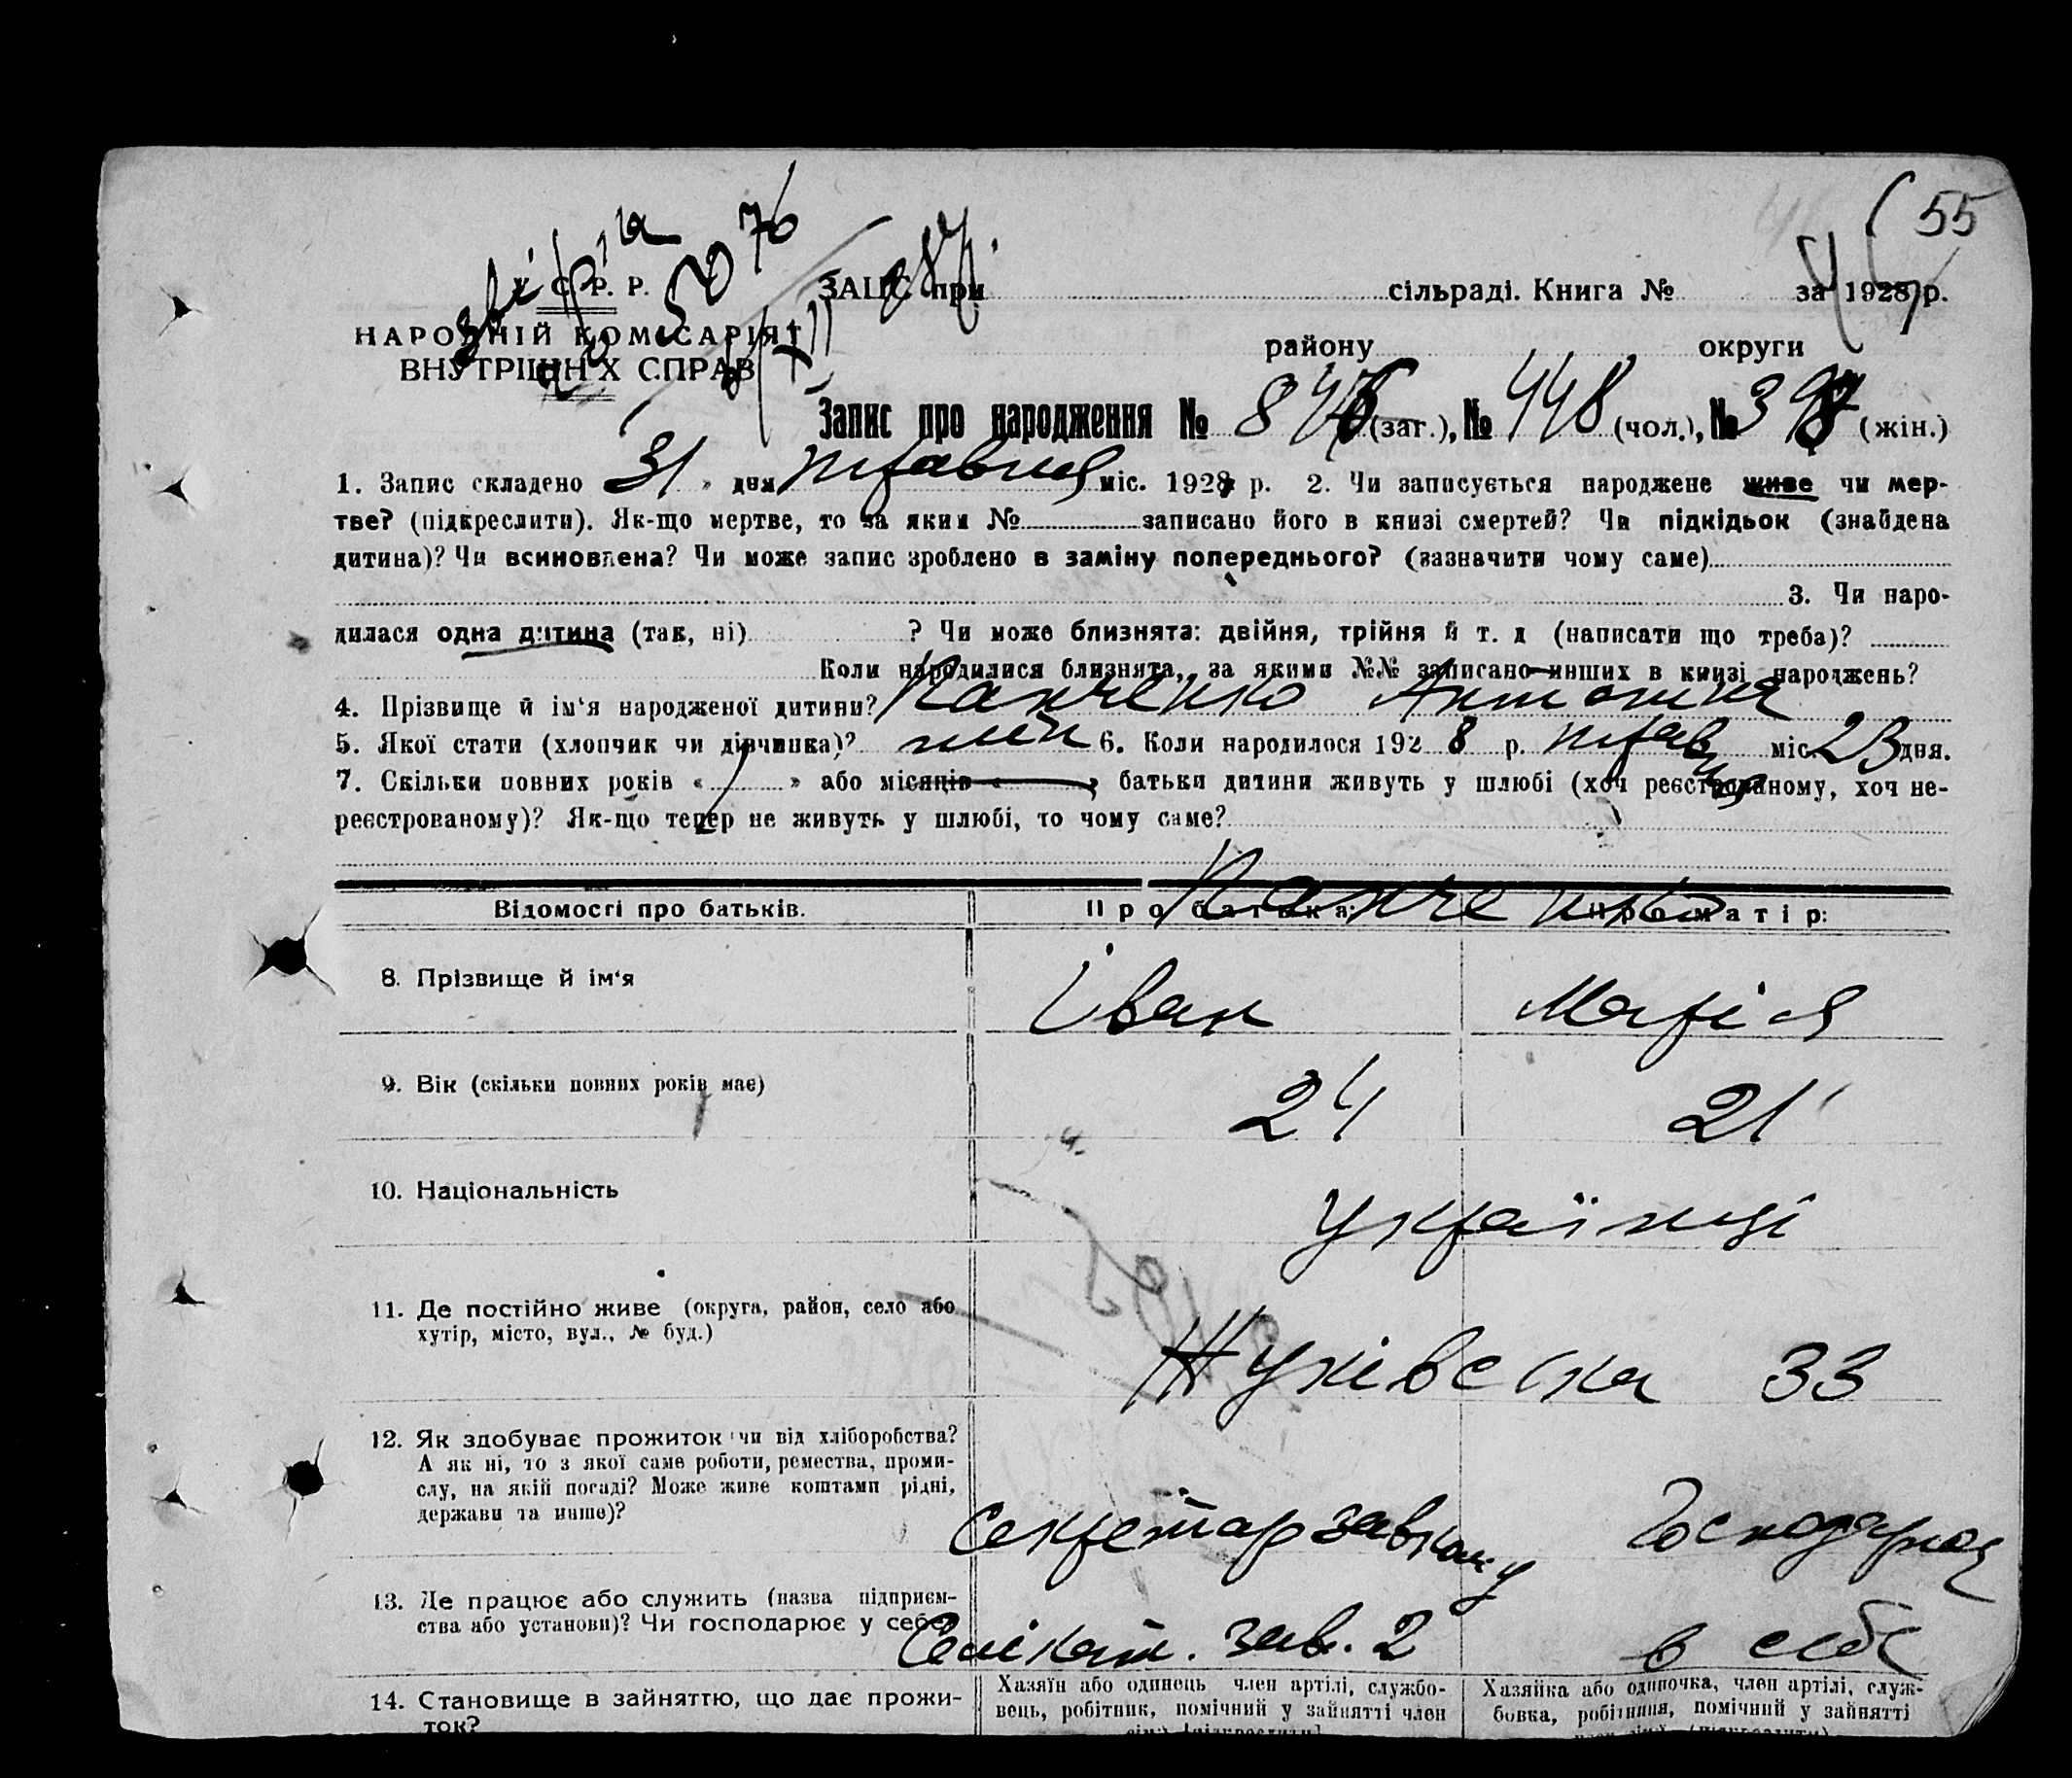 55
У. С. Р. Р.
ЗАЦС при сільраді. Книга № за 1928 р.
НАРОДНІЙ КОМІСАРІЯТ
ВНУТРІШНІХ СПРАВ
району округи
Запис про народження № (заг.), № 448 (чол.), № (жін.)
1. Запис складено 31 » дня травня міс. 1928 р. 2. Чи записується народжене живе чи мер-
тве? (підкреслити). Як-що мертве, то за яким № записано його в книзі смертей? Чи підкідьок (знайдена
дитина)? Чи всиновлена? Чи може запис зроблено в заміну попереднього? (зазначити чому саме)
3. Чи наро-
дилася одна дитина (так, ні) ? Чи може близнята: двійня, трійня й т. д (написати що треба)?
Коли народилися близнята, за якими №№ записано инших в книзі народжень?
4. Прізвище й ім'я народженої дитини? Панченко Антонина
5. Якої стати (хлопчик чи дівчинка)? 6. Коли народилося 192 8 р. травня міс. 23 дня.
7. Скільки повних років « » або місяців « » батьки дитини живуть у шлюбі (хоч реєстрованому, хоч не-
реєстрованому)? Як-що тепер не живуть у шлюбі, то чому саме?
Панченко
Відомості про батьків. Про батька: Про матір:
8. Прізвище й ім'я Іван Марія
9. Вік (скільки повних років має) 24 21
10. Національність Українці
11. Де постійно живе (округа, район, село або
хутір, місто, вул., № буд.)
Жуківська 33
12. Як здобуває прожиток чи від хліборобства?
А як ні, то з якої саме роботи, ремества, проми-
слу, на якій посаді? Може живе коштами рідні,
держави та инше)?
Секретар завкому Господарка
13. Де працює або служить (назва підприєм-
ства або установи)? Чи господарює у себе?
Силікат. зав. 2 в себе
14. Становище в зайняттю, що дає прожи-
ток?
Хазяїн або одинець член артілі, службо-
вець, робітник, помічний у зайнятті член
Хазяйка або одиночка, член артілі, служ-
бовка, робітниця, помічний у зайнятті